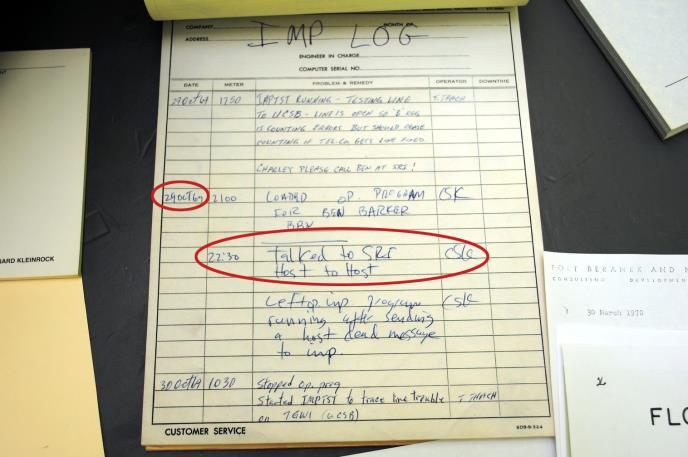 COMPANY
MONTH OF
ADDRESS
IMP LOG
ENGINEER IN CHARGE
COMPUTER SERIAL NO.
DATE METER PROBLEM & REMEDY OPERATOR DOWNTIME
29Oct69 1750 IMPTST RUNNING - TESTING LINE T. THACH
TO UCSB - LINE IS OPEN SO 'B' REG
IS COUNTING ERRORS BUT SHOULD CEASE
COUNTING IF TEL-CO GETS LINE FIXED.
CHARLEY PLEASE CALL BEN AT SRI!
29Oct69 2100 LOADED OP. PROGRAM CSK
FOR BEN BARKER
BBN
22:30 Talked to SRI CSK
Host to Host
Left op. imp. program CSK
running after sending
a host dead message
to imp.
30Oct69 1030 Stopped op. prog
Started IMPTST to trace line trouble T. THACH
on (UCSB)
CUSTOMER SERVICE
NARD KLEINROCK
BERANEK AND N
CONSULTING DEVELOPMEN
30 March 1970
FLO